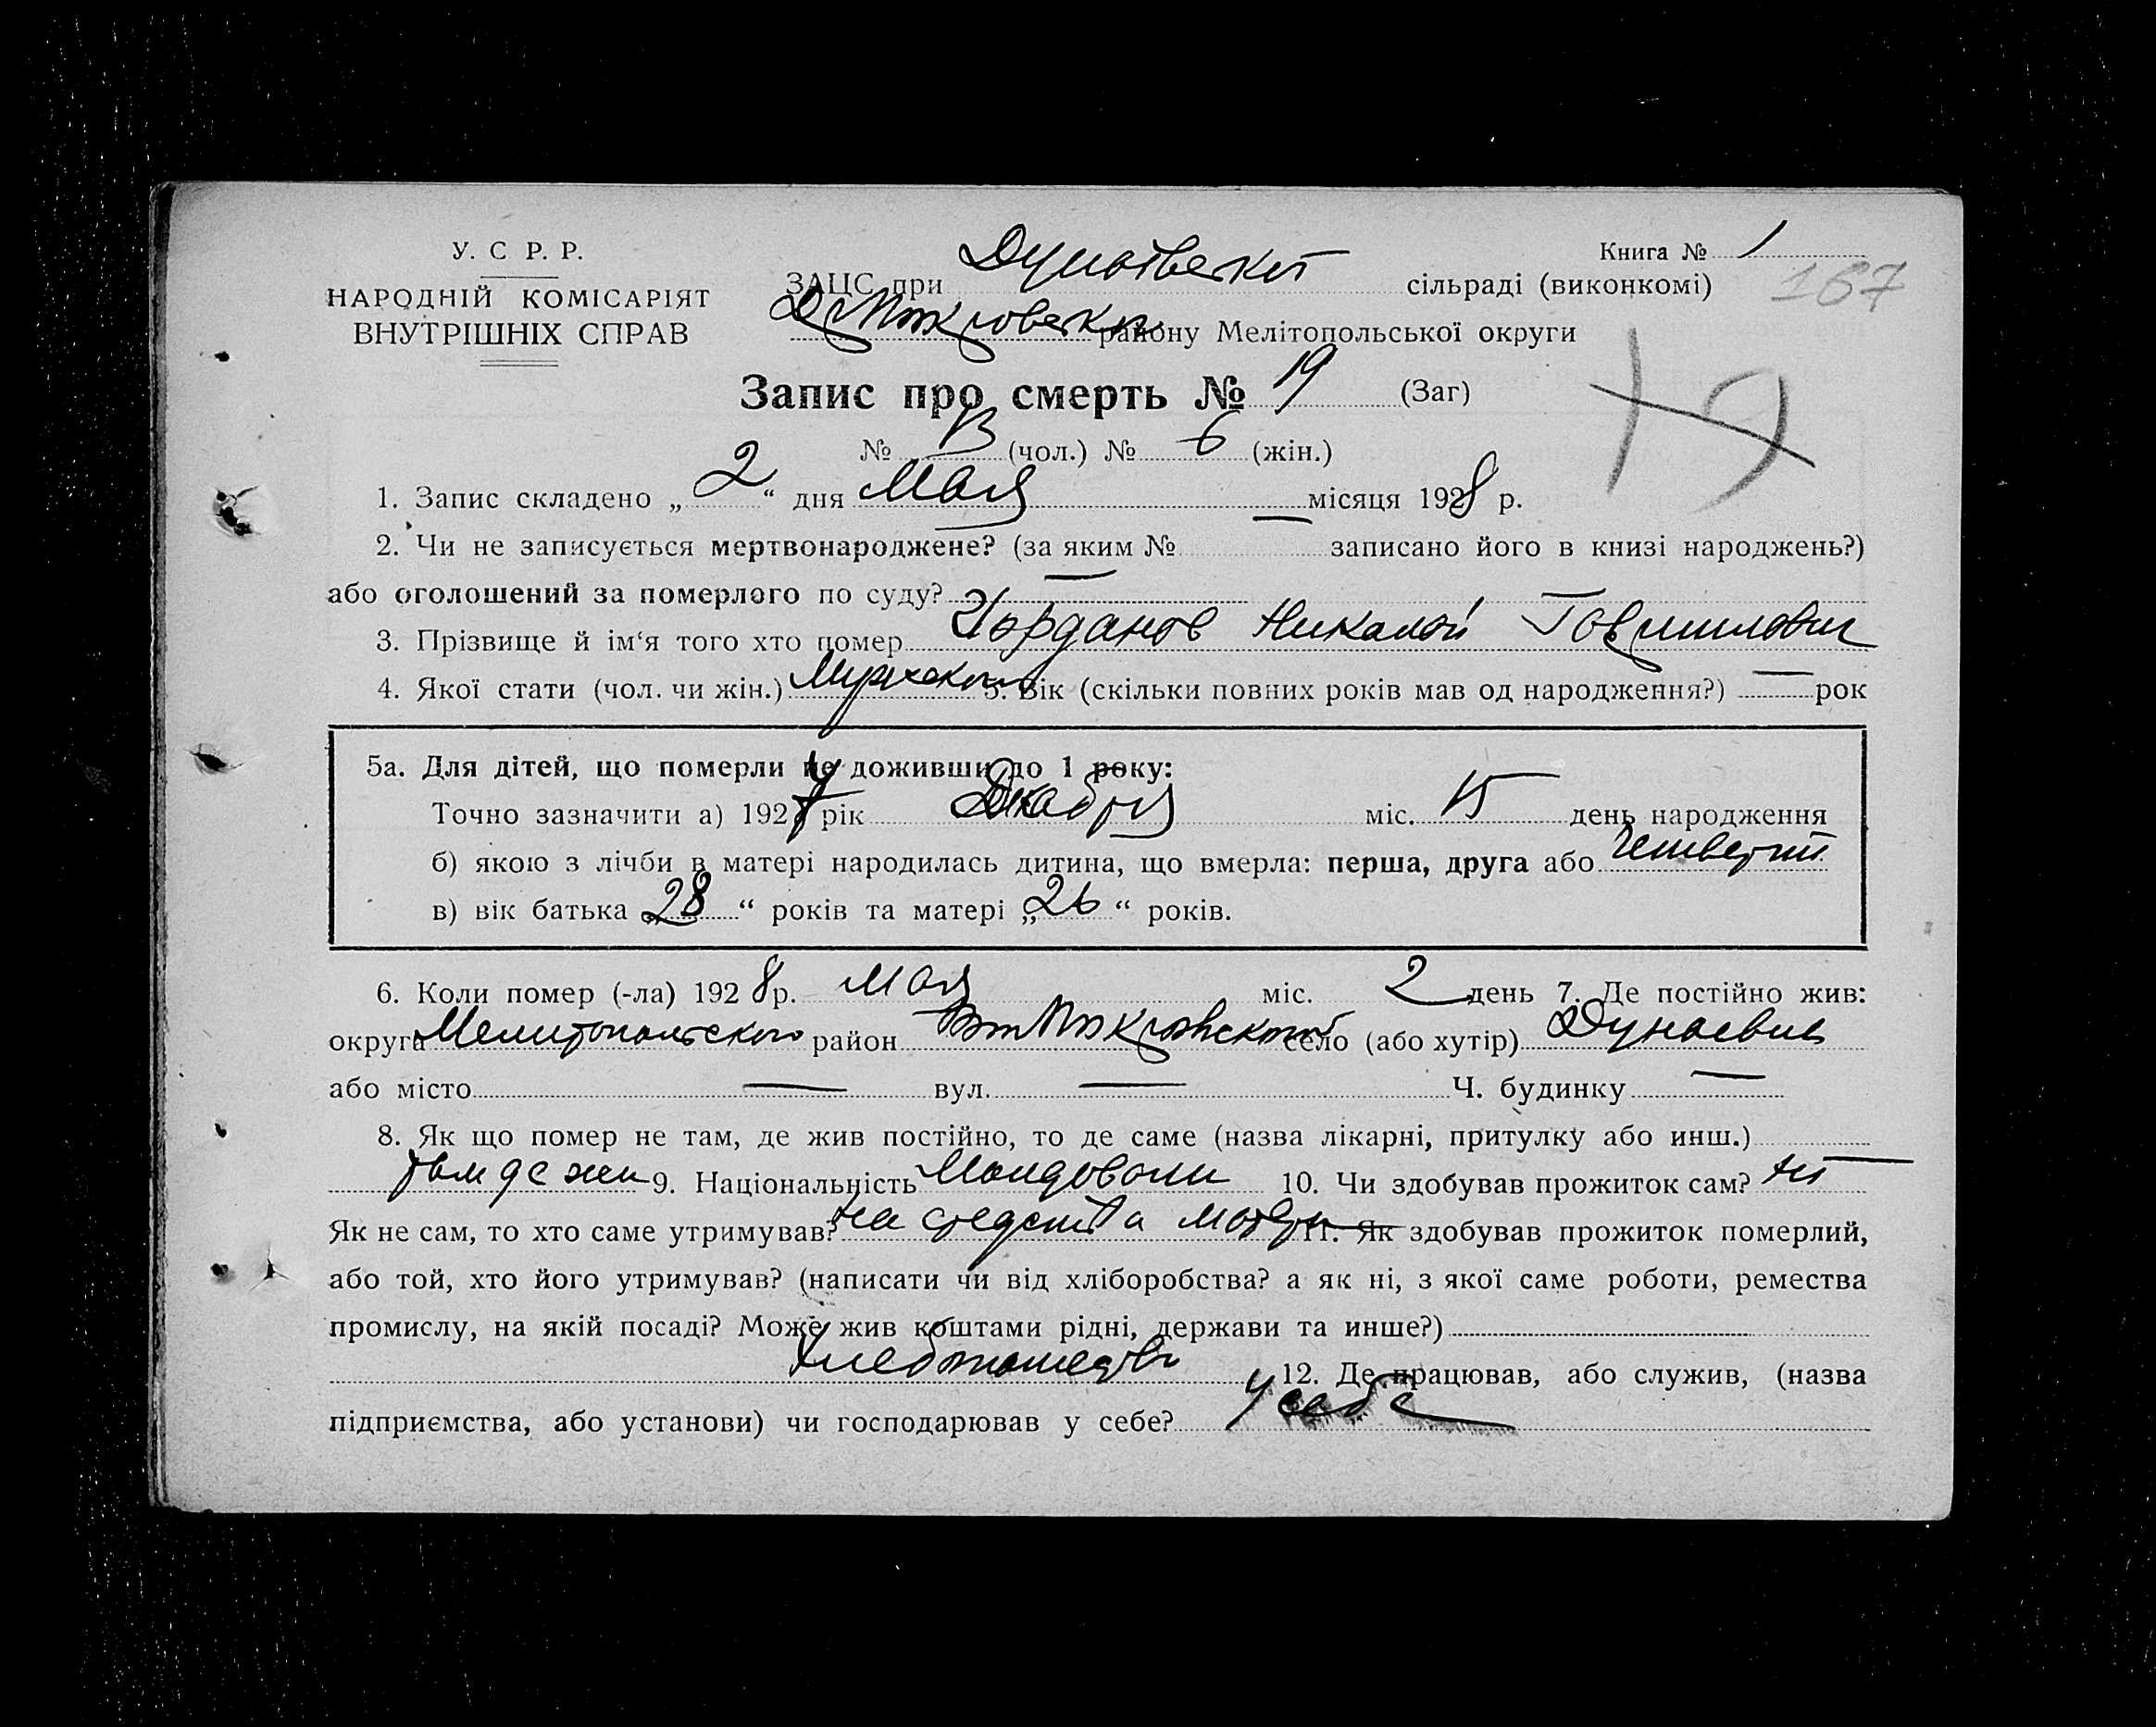 У. С Р. Р.
НАРОДНІЙ КОМІСАРІЯТ
ВНУТРІШНІХ СПРАВ
Книга № 1
167
ЗАЦС при сільраді (виконкомі)
району Мелітопольської округи
Запис про смерть № 19 (Заг)
№ 13 (чол.) № 6 (жін.)
1. Запис складено „ 2 “ дня Мая місяця 1928 р.
2. Чи не записується мертвонароджене? (за яким № — записано його в книзі народжень?)
або оголошений за померлого по суду? —
3. Прізвище й ім‘я того хто помер Иорданов Николай
4. Якої стати (чол. чи жін.) Мужского 5. Вік (скільки повних років мав од народження?) — рок
5а. Для дітей, що померли не доживши до 1 року:
Точно зазначити а) 1927 рік Декабря міс. 15 день народження
б) якою з лічби в матері народилась дитина, що вмерла: перша, друга або
в) вік батька „ 28 “ років та матері „ 26 “ років.
6. Коли помер (-ла) 1928 р. мая міс. 2 день 7. Де постійно жив:
округа Мелитопольского район село (або хутір)
або місто — вул. — Ч. будинку —
8. Як що помер не там, де жив постійно, то де саме (назва лікарні, притулку або инш.)
там де жил 9. Національність 10. Чи здобував прожиток сам? нет
Як не сам, то хто саме утримував? на средства 11. Як здобував прожиток померлий,
або той, хто його утримував? (написати чи від хліборобства? а як ні, з якої саме роботи, ремества
промислу, на якій посаді? Може жив коштами рідні, держави та инше?)
12. Де працював, або служив, (назва
підприємства, або установи) чи господарював у себе? у себе